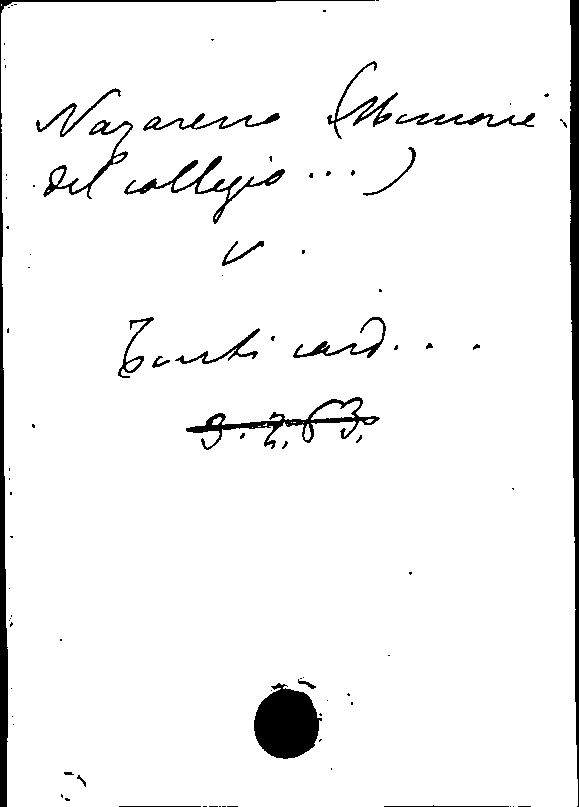 Nazareno (Memorie
del collegio ...)
v.
Tonti card. ...
9.2.63.